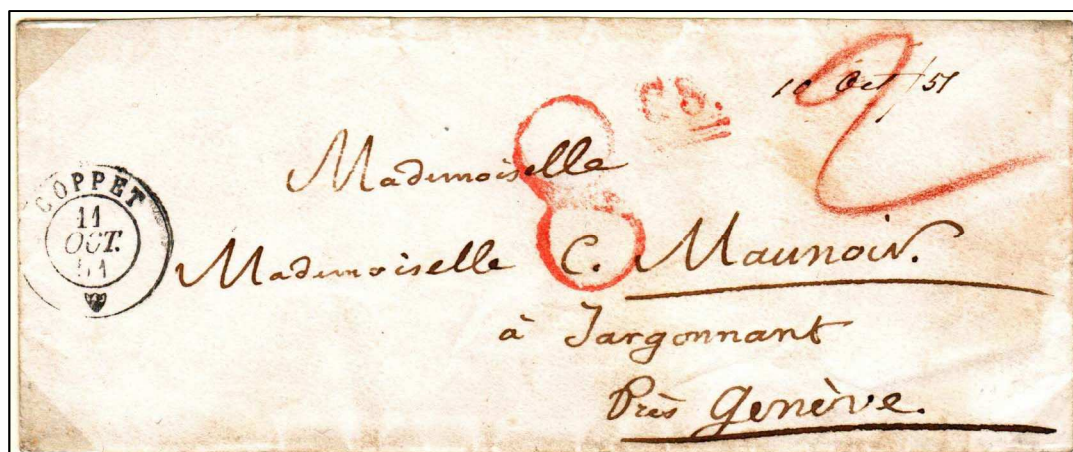 10 Oct/51
8
2
COPPET
11
OCT.
51
Mademoiselle
Mademoiselle C. Maunoir.
à Jargonnant
Près Genève.